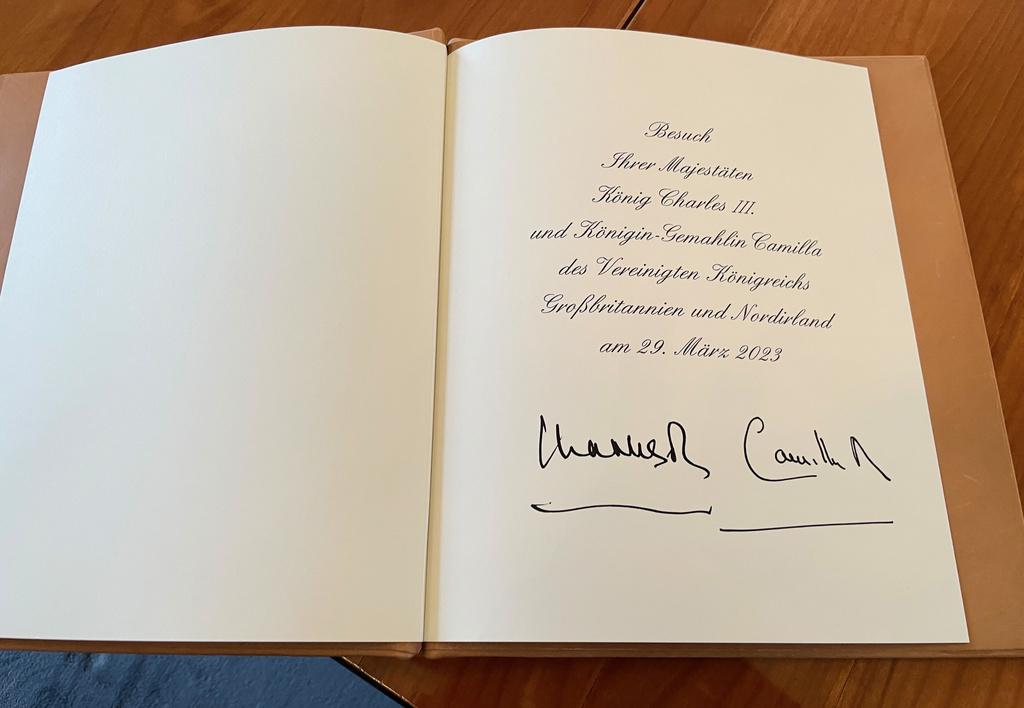 Besuch
Ihrer Majestäten
König Charles III.
und Königin-Gemahlin Camilla
des Vereinigten Königreichs
Großbritannien und Nordirland
am 29. März 2023
Charles R Camilla R